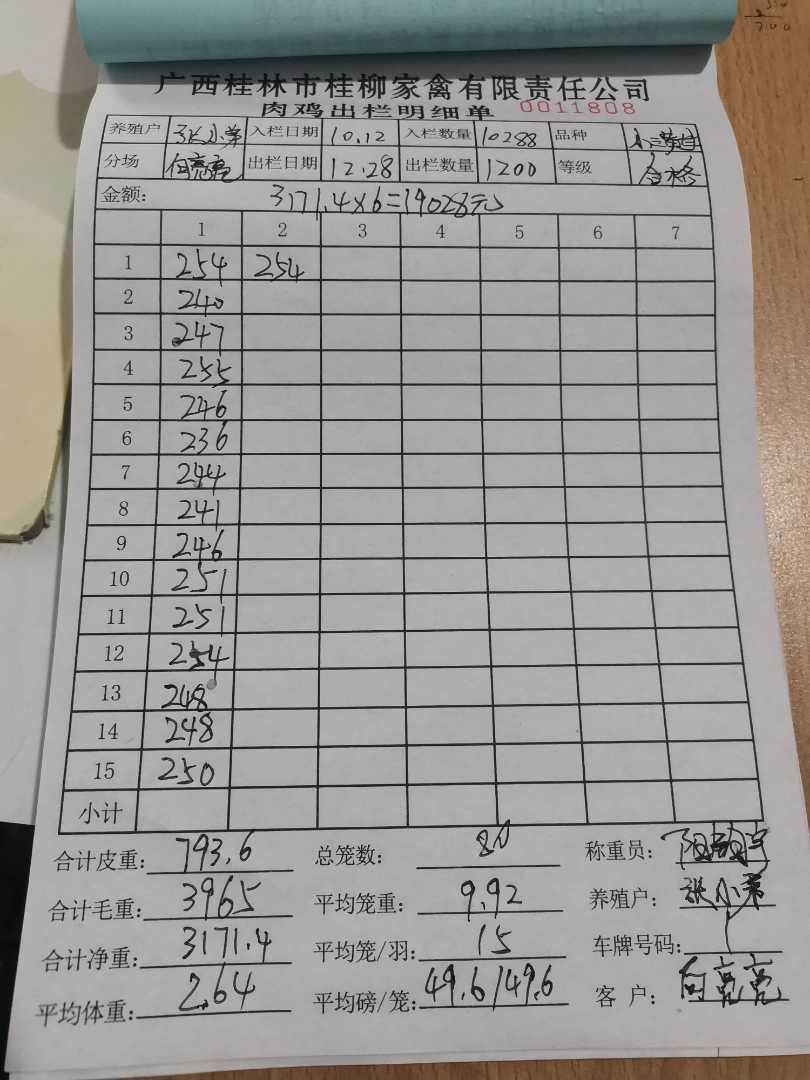 广西桂林市桂柳家禽有限责任公司
肉鸡出栏明细单 0011808
养殖户 张小荣 入栏日期 10.12 入栏数量 10288 品种
分场 向亮亮 出栏日期 12.28 出栏数量 1200 等级 合格
金额: 3171.4×6=19028元
1 2 3 4 5 6 7
1 254 254
2 240
3 247
4 255
5 246
6 236
7 244
8 241
9 246
10 251
11 251
12 254
13 248
14 248
15 250
小计
合计皮重: 793.6 总笼数: 80 称重员:
合计毛重: 3965 平均笼重: 9.92 养殖户: 张小荣
合计净重: 3171.4 平均笼/羽: 15 车牌号码:
平均体重: 2.64 平均磅/笼: 49.6/49.6 客 户: 向亮亮